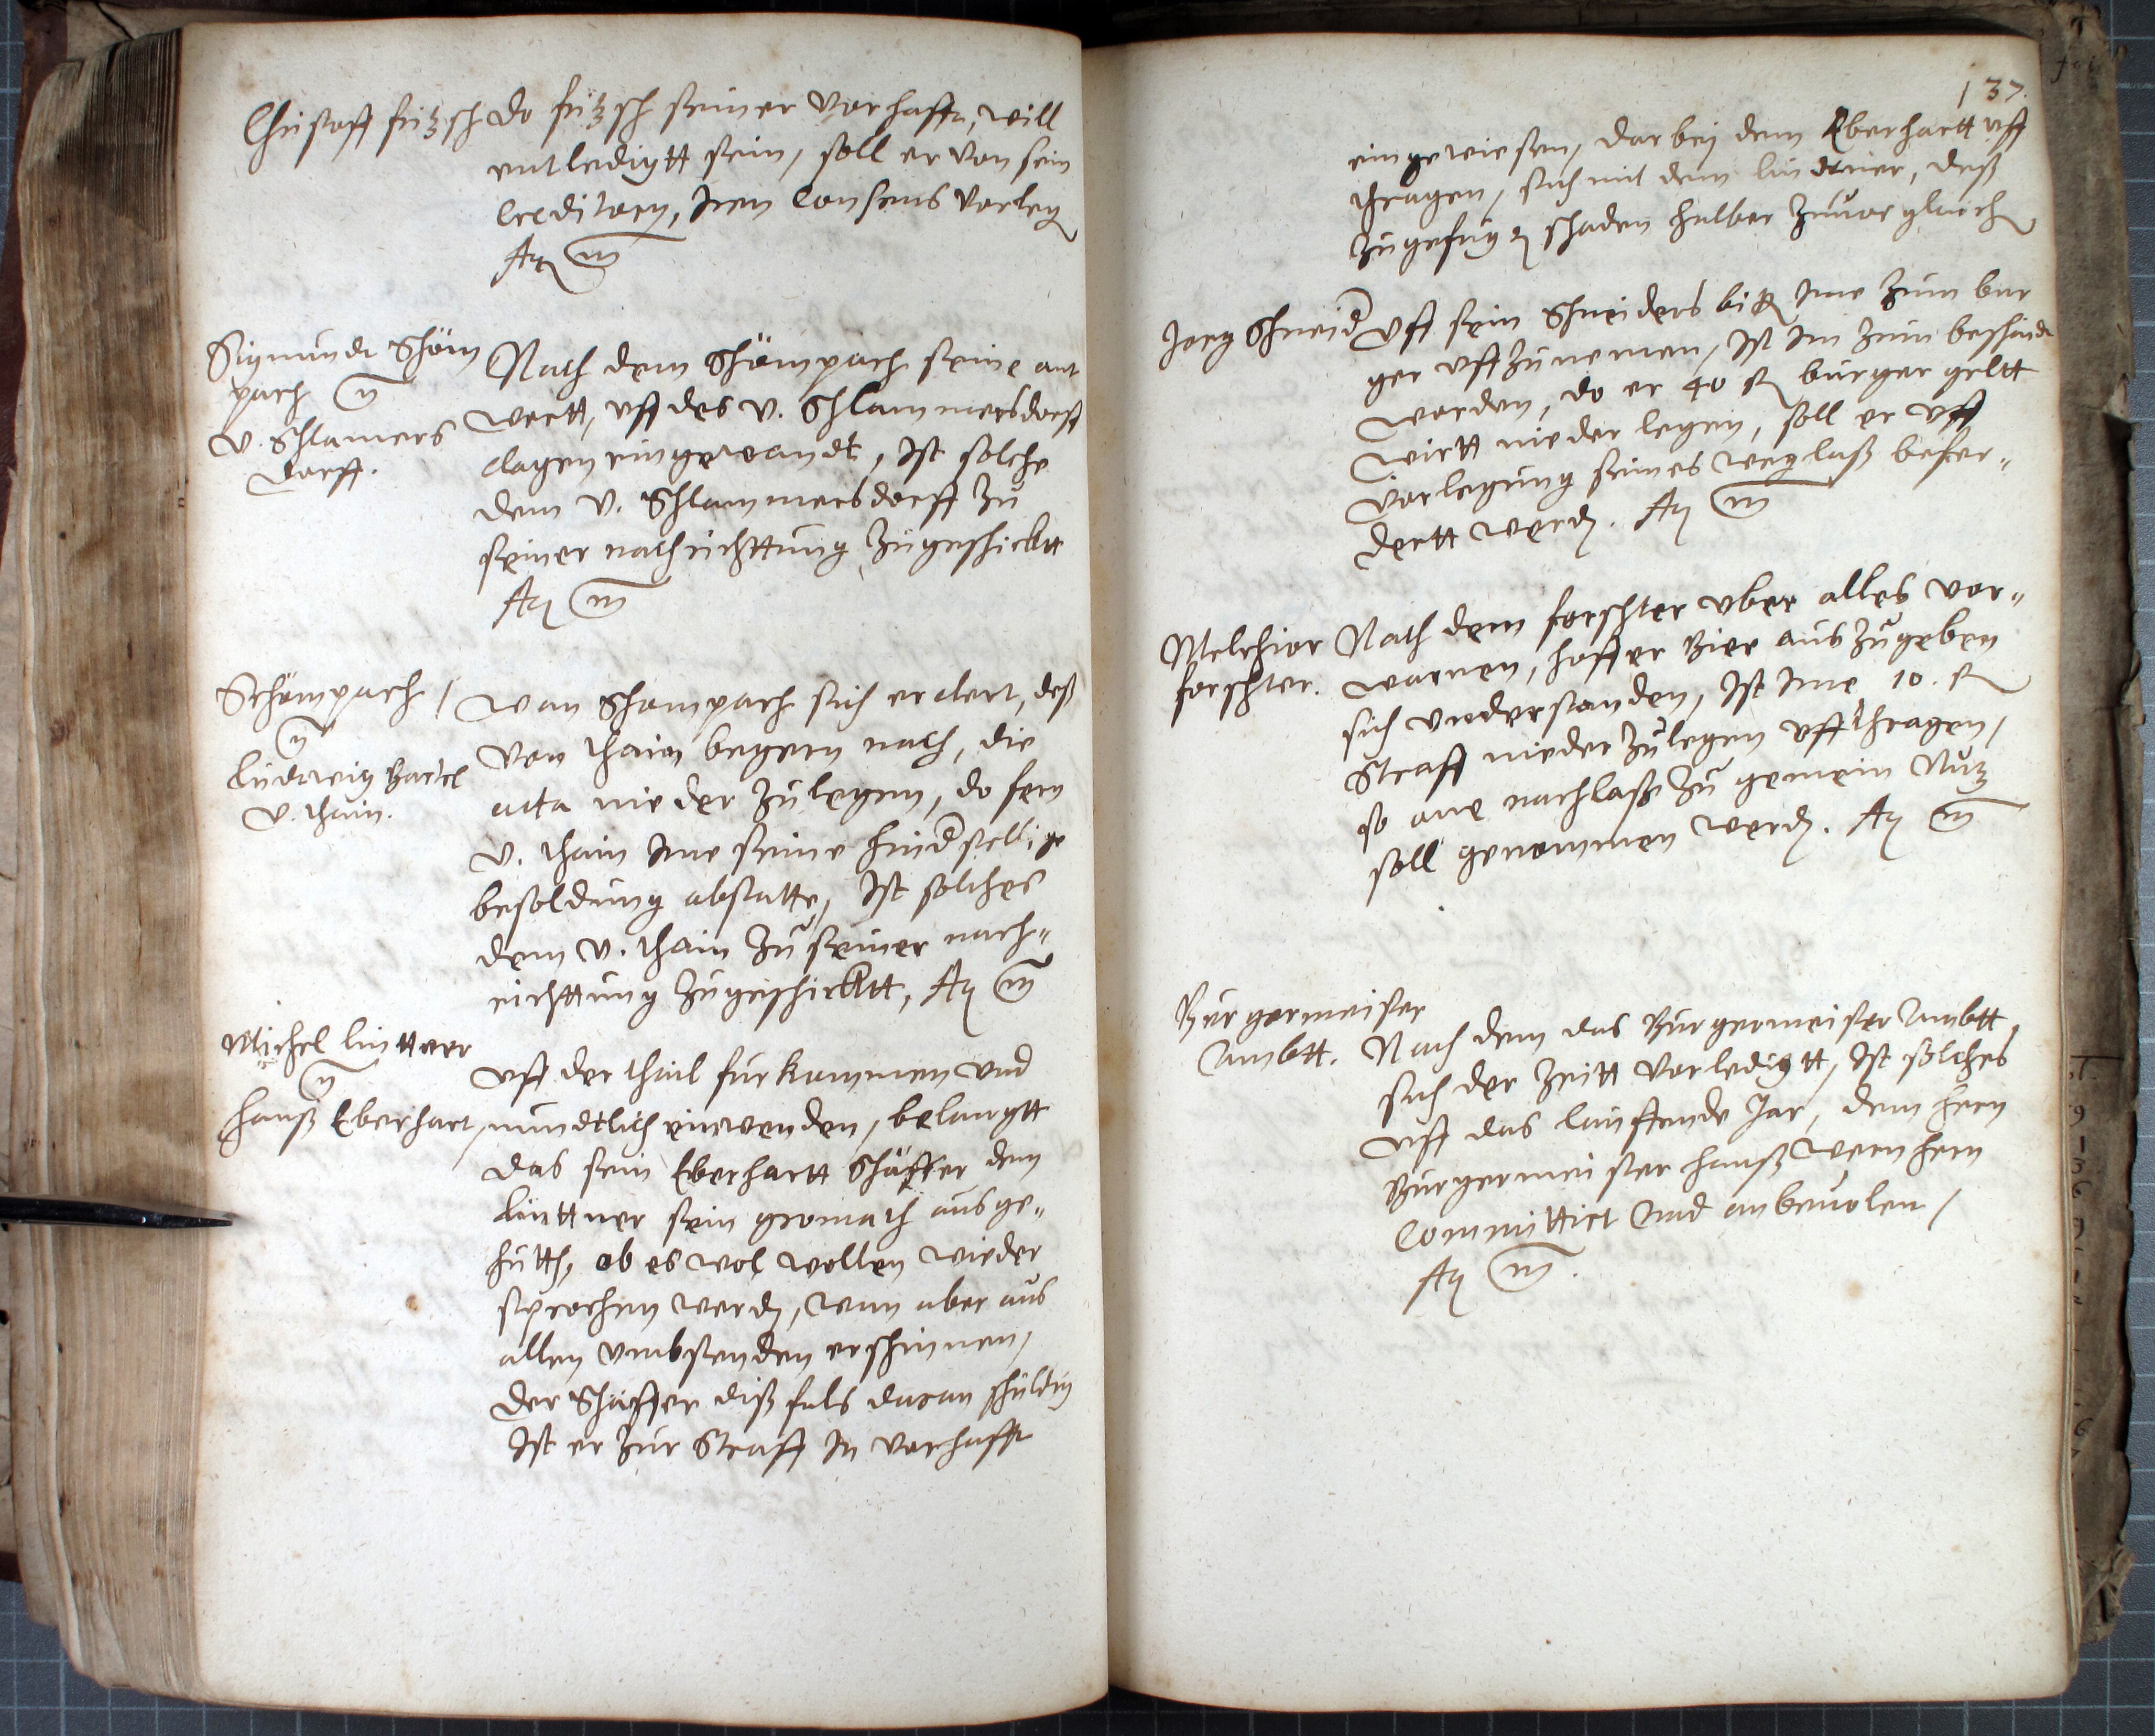 Christoff fritzsch
Do fritzsch seiner vorhafft, will
entledigtt sein, soll er von sein
Creditorn, iren Consens vorleg
Act m
Sigmundt Schön
pach
V. Schlamers
dorff.
Nach dem Schönpach seine ant
wortt, uff des V. Schlammersdorff
clagen eingewandt, Ist solche
dem V. Schlammersdorff zu
seiner nachrichttung zugeschicktt
Act m
Schönpach /
Ludwig Bartel
V. thain.
Wan Schonpach sich erclert, deß
von thain begern nach, die
acta nieder zulegen, do fern
V. thain Ime seine hinderstellige
besoldung abstatte, Ist solches
dem V. thain zu seiner nach„
richttung zugeschicktt, Act m
Michel linttner
Hanß Eberhart,
Uff der theil furkommen und
mundtlich einwenden, belangtt
das sein Eberhartt Schäffer dem
linttner sein gromath aus ge„
hutth, ob es wol wollen wieder
sprochen werd, wan aber aus
allen umbstenden erschinnen,
der Schäffer dißfals daran schuldig
Ist er zur Straff In vorhafft
137.
eingewiesen, darbej dem Eberhartt uff
thragen, sich mit dem lindtner, deß
zugefugt schaden halber zuvor gleich
Jorg Schneid
Uff sein Schneiders bitt Ime zum bur
ger uffzunemen, Ist Im zum bescheidt
worden, do er 40 fl burger geltt
wirtt nieder legen, soll er uff
Vorlegung seines weglaß befor„
dertt werd. Act m
Melchior
forschter.
Nach dem forschter uber alles vor„
warnen, hoffer Bier aus zu geben
sich understanden, Ist Ime 10. fl
Straff nieder zulegen uffthragen,
so ane nachlaß zu gemein Nutz
soll genommen werd. Act m
Burgermeister
Ambtt.
Nach dem das Burgermeister Ambtt
sich der Zeitt vorledigtt, Ist solches
uff das lauffende Jar, dem hern
Burgermeister Hanß Wernhern
Committirt und anbevolen /
Act m.